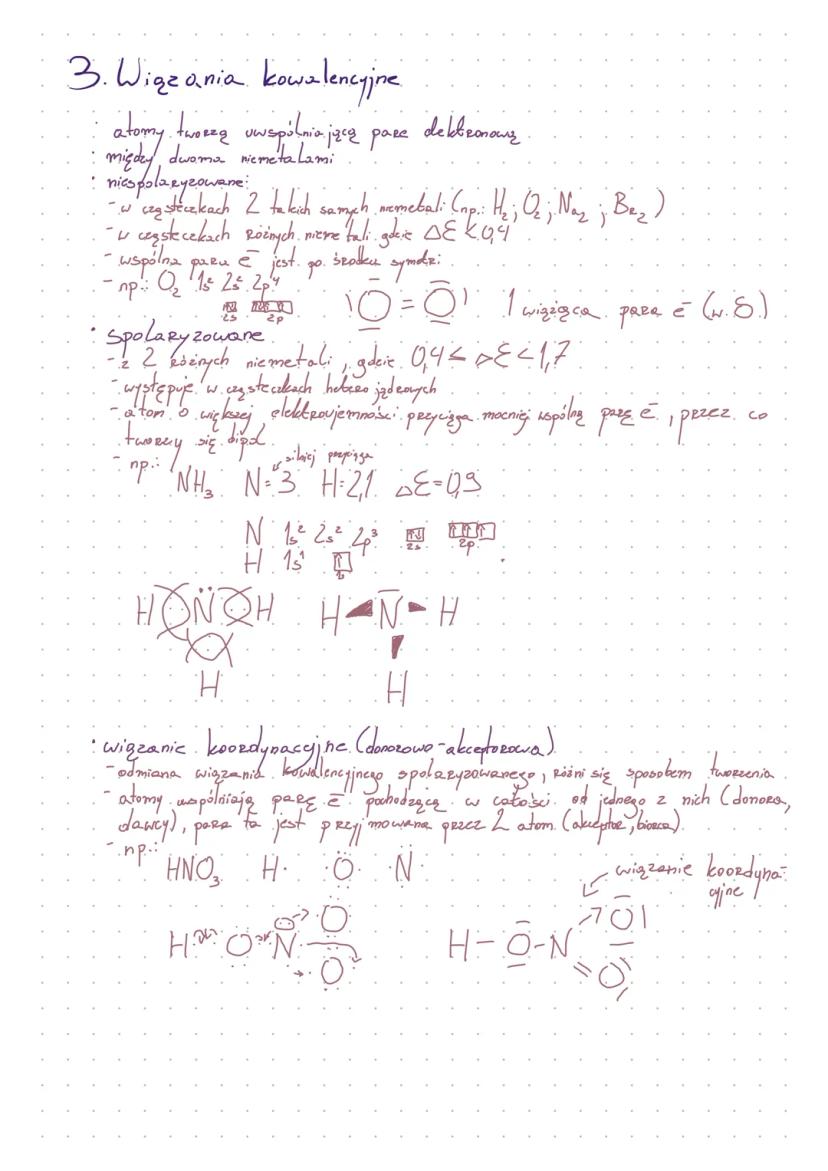 3. Wiązania kowalencyjne
· atomy tworzą uwspólniającą parę elektronową
· między dwoma niemetalami
· niespolaryzowane:
- w cząsteczkach 2 takich samych niemetali (np.: H₂; O₂; Na₂; Br₂)
- w cząsteczkach różnych niemetali gdzie ΔE < 0,4
- wspólna para e⁻ jest po środku symetri
- np.: O₂ 1s² 2s² 2p⁴
2s 2p
O = O 1 wiążąca para e⁻ (w. δ)
· spolaryzowane
- z 2 różnych niemetali, gdzie 0,4 < ΔE < 1,7
- występuje w cząsteczkach heterojądrowych
- atom o większej elektroujemności przyciąga mocniej wspólną parę e⁻, przez co
tworzy się dipol
- np.: silniej przyciąga
NH₃ N=3 H=2,1 ΔE=0,9
N 1s² 2s² 2p³ 2s 2p
H 1s¹
H N H H N H
H H
· wiązanie koordynacyjne (donorowo-akceptorowa)
- odmiana wiązania kowalencyjnego spolaryzowanego, różni się sposobem tworzenia
- atomy uwspólniają parę e⁻ pochodzącą w całości od jednego z nich (donora,
dawcy), para ta jest przyjmowana przez 2 atom (akceptor, biorca)
- np.:
HNO₃ H· O N
wiązanie koordyna-
cyjne
H O N O O
H – O – N O O